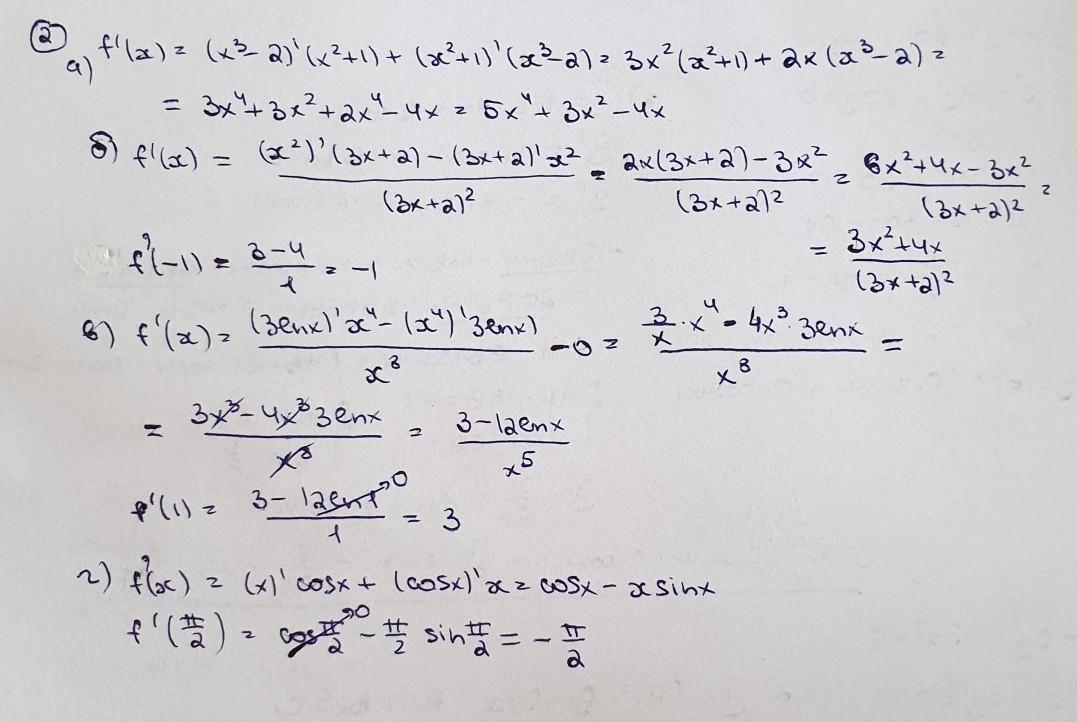 ② a) f'(x) = (x³ - 2)'(x²+1) + (x²+1)'(x³-2) = 3x²(x²+1) + 2x(x³-2) =
= 3x⁴ + 3x² + 2x⁴ - 4x = 5x⁴ + 3x² - 4x
б) f'(x) = ((x²)'(3x+2) - (3x+2)'x²)/(3x+2)² = (2x(3x+2) - 3x²)/(3x+2)² = (6x²+4x-3x²)/(3x+2)² =
= (3x²+4x)/(3x+2)²
f'(-1) = (3-4)/1 = -1
в) f'(x) = ((3lnx)'x⁴ - (x⁴)'3lnx)/x⁸ - 0 = (3/x · x⁴ - 4x³ · 3lnx)/x⁸ =
= (3x³ - 4x³3lnx)/x⁸ = (3-12lnx)/x⁵
f'(1) = (3 - 12ln1→0)/1 = 3
г) f'(x) = (x)'cosx + (cosx)'x = cosx - xsinx
f'(π/2) = cosπ/2→0 - π/2 sinπ/2 = -π/2